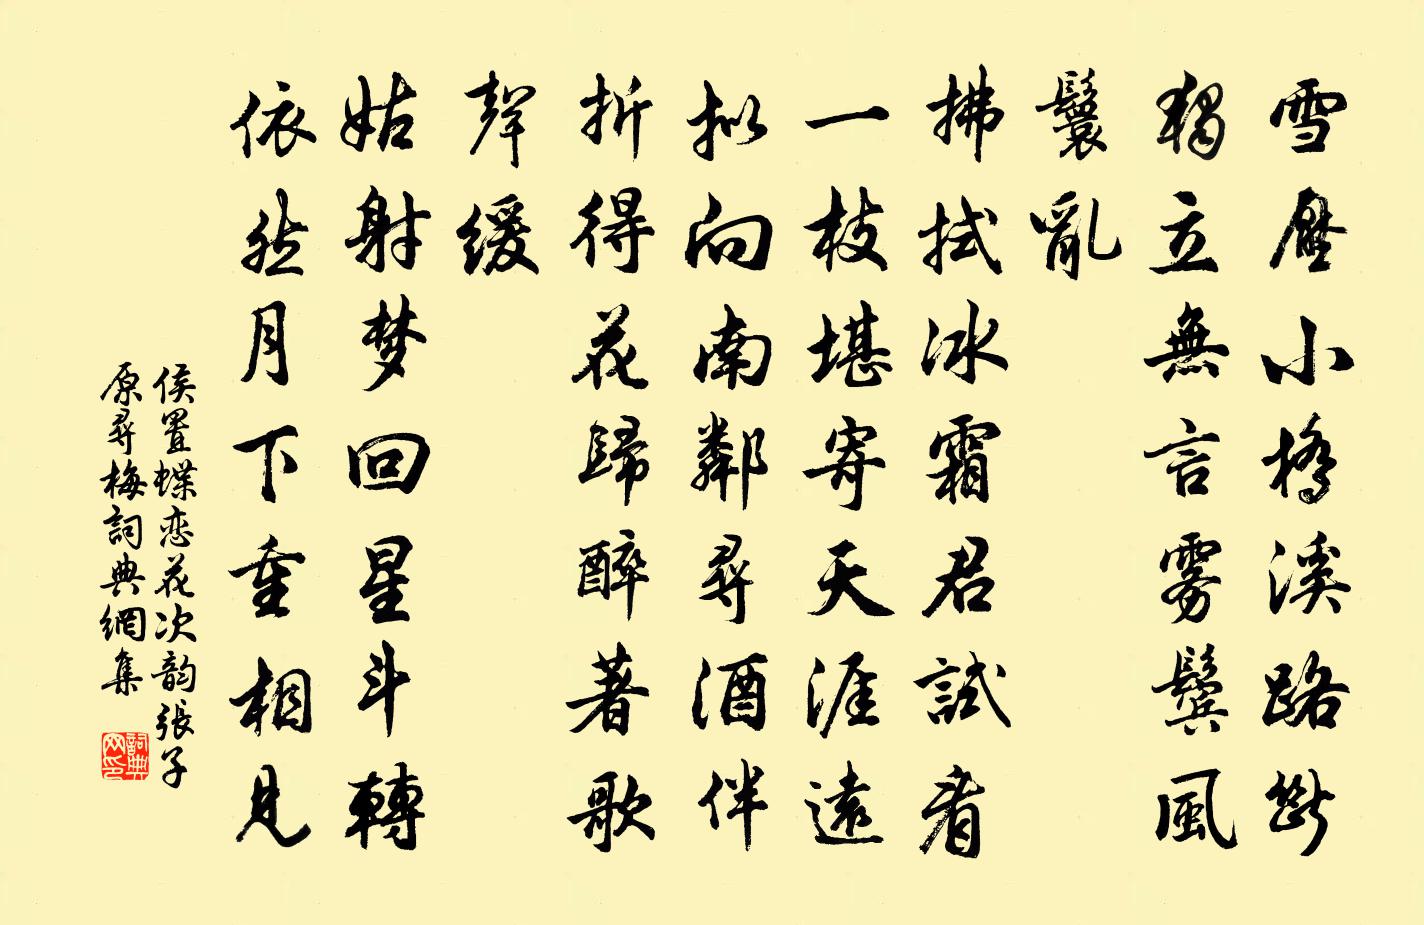 雪壓小橋溪路斷
獨立無言雾鬓風
鬟亂
拂拭冰霜君試看
一枝堪寄天涯遠
拟向南鄰尋酒伴
折得花歸醉著歌
聲缓
姑射梦回星斗轉
依然月下重相見
侯置蝶恋花次韵張子
原尋梅詞典網集
詞典網印